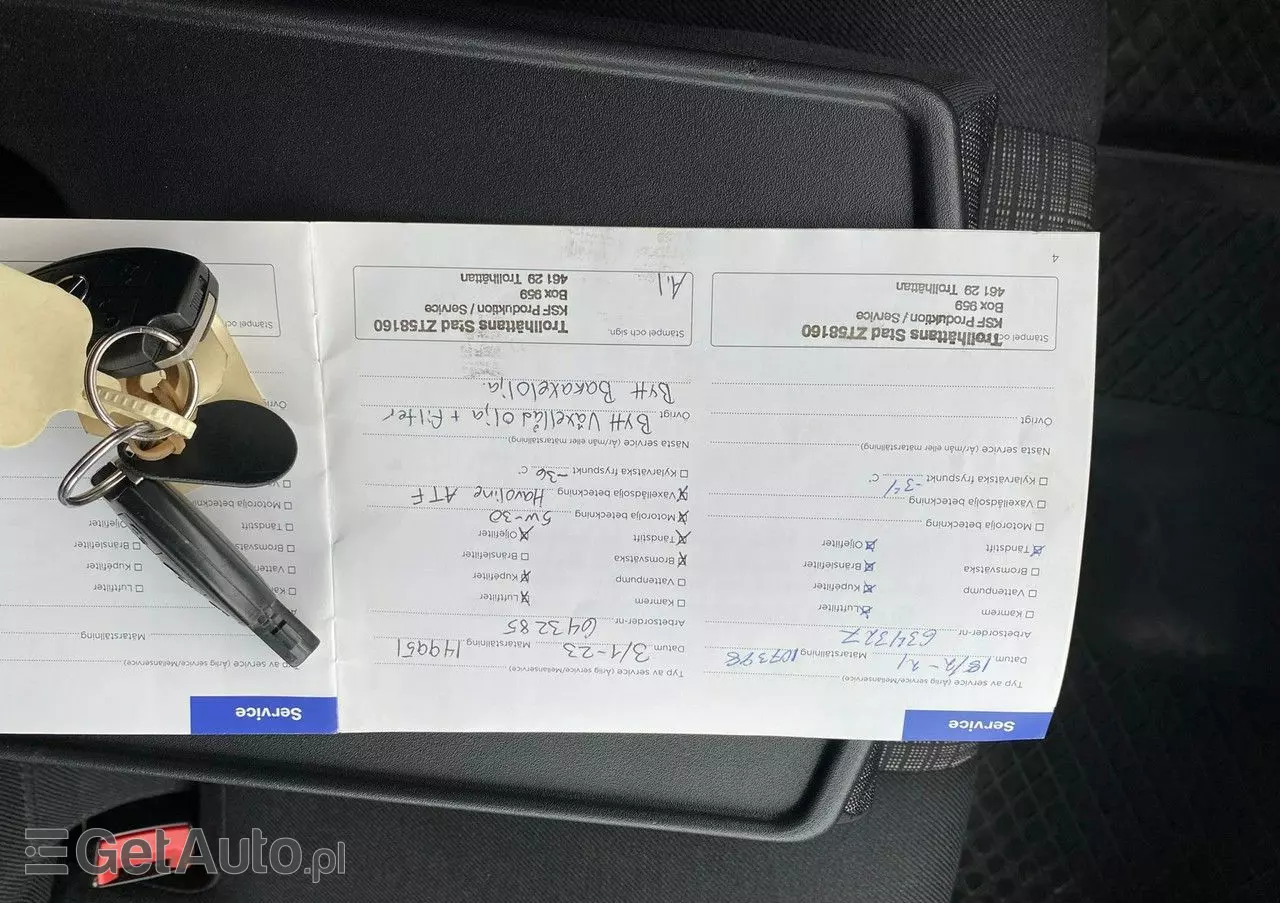 Service
Typ av service (Årlig service/Mellanservice)
Datum 18/2-21 Mätarställning 107398
Arbetsorder-nr 6341327
Kamrem Luftfilter
Vattenpump Kupéfilter
Bromsvätska Bränslefilter
Tändstift Oljefilter
Motorolja beteckning
Växellådsolja beteckning
Kylarvätska fryspunkt -34 C°
Nästa service (År/mån eller mätarställning)
Övrigt
Stämpel och
Trollhättans Stad ZT58160
KSF Produktion / Service
Box 959
461 29 Trollhättan
4
Typ av service (Årlig service/Mellanservice)
Datum 3/1-23 Mätarställning 149951
Arbetsorder-nr 643285
Kamrem Luftfilter
Vattenpump Kupéfilter
Bromsvätska Bränslefilter
Tändstift Oljefilter
Motorolja beteckning 5W-30
Växellådsolja beteckning Havoline ATF
Kylarvätska fryspunkt -36 C°
Nästa service (År/mån eller mätarställning)
Övrigt Bytt Växellåd olja + filter
Bytt Bakaxelolja.
Stämpel och sign.
Trollhättans Stad ZT58160
KSF Produktion / Service
Box 959
461 29 Trollhättan
A.l
Service
Typ av service (Årlig service/Mellanservice)
Mätarställning
Luftfilter
Kupéfilter
Bränslefilter
Oljefilter
Tändstift
GetAuto.pl